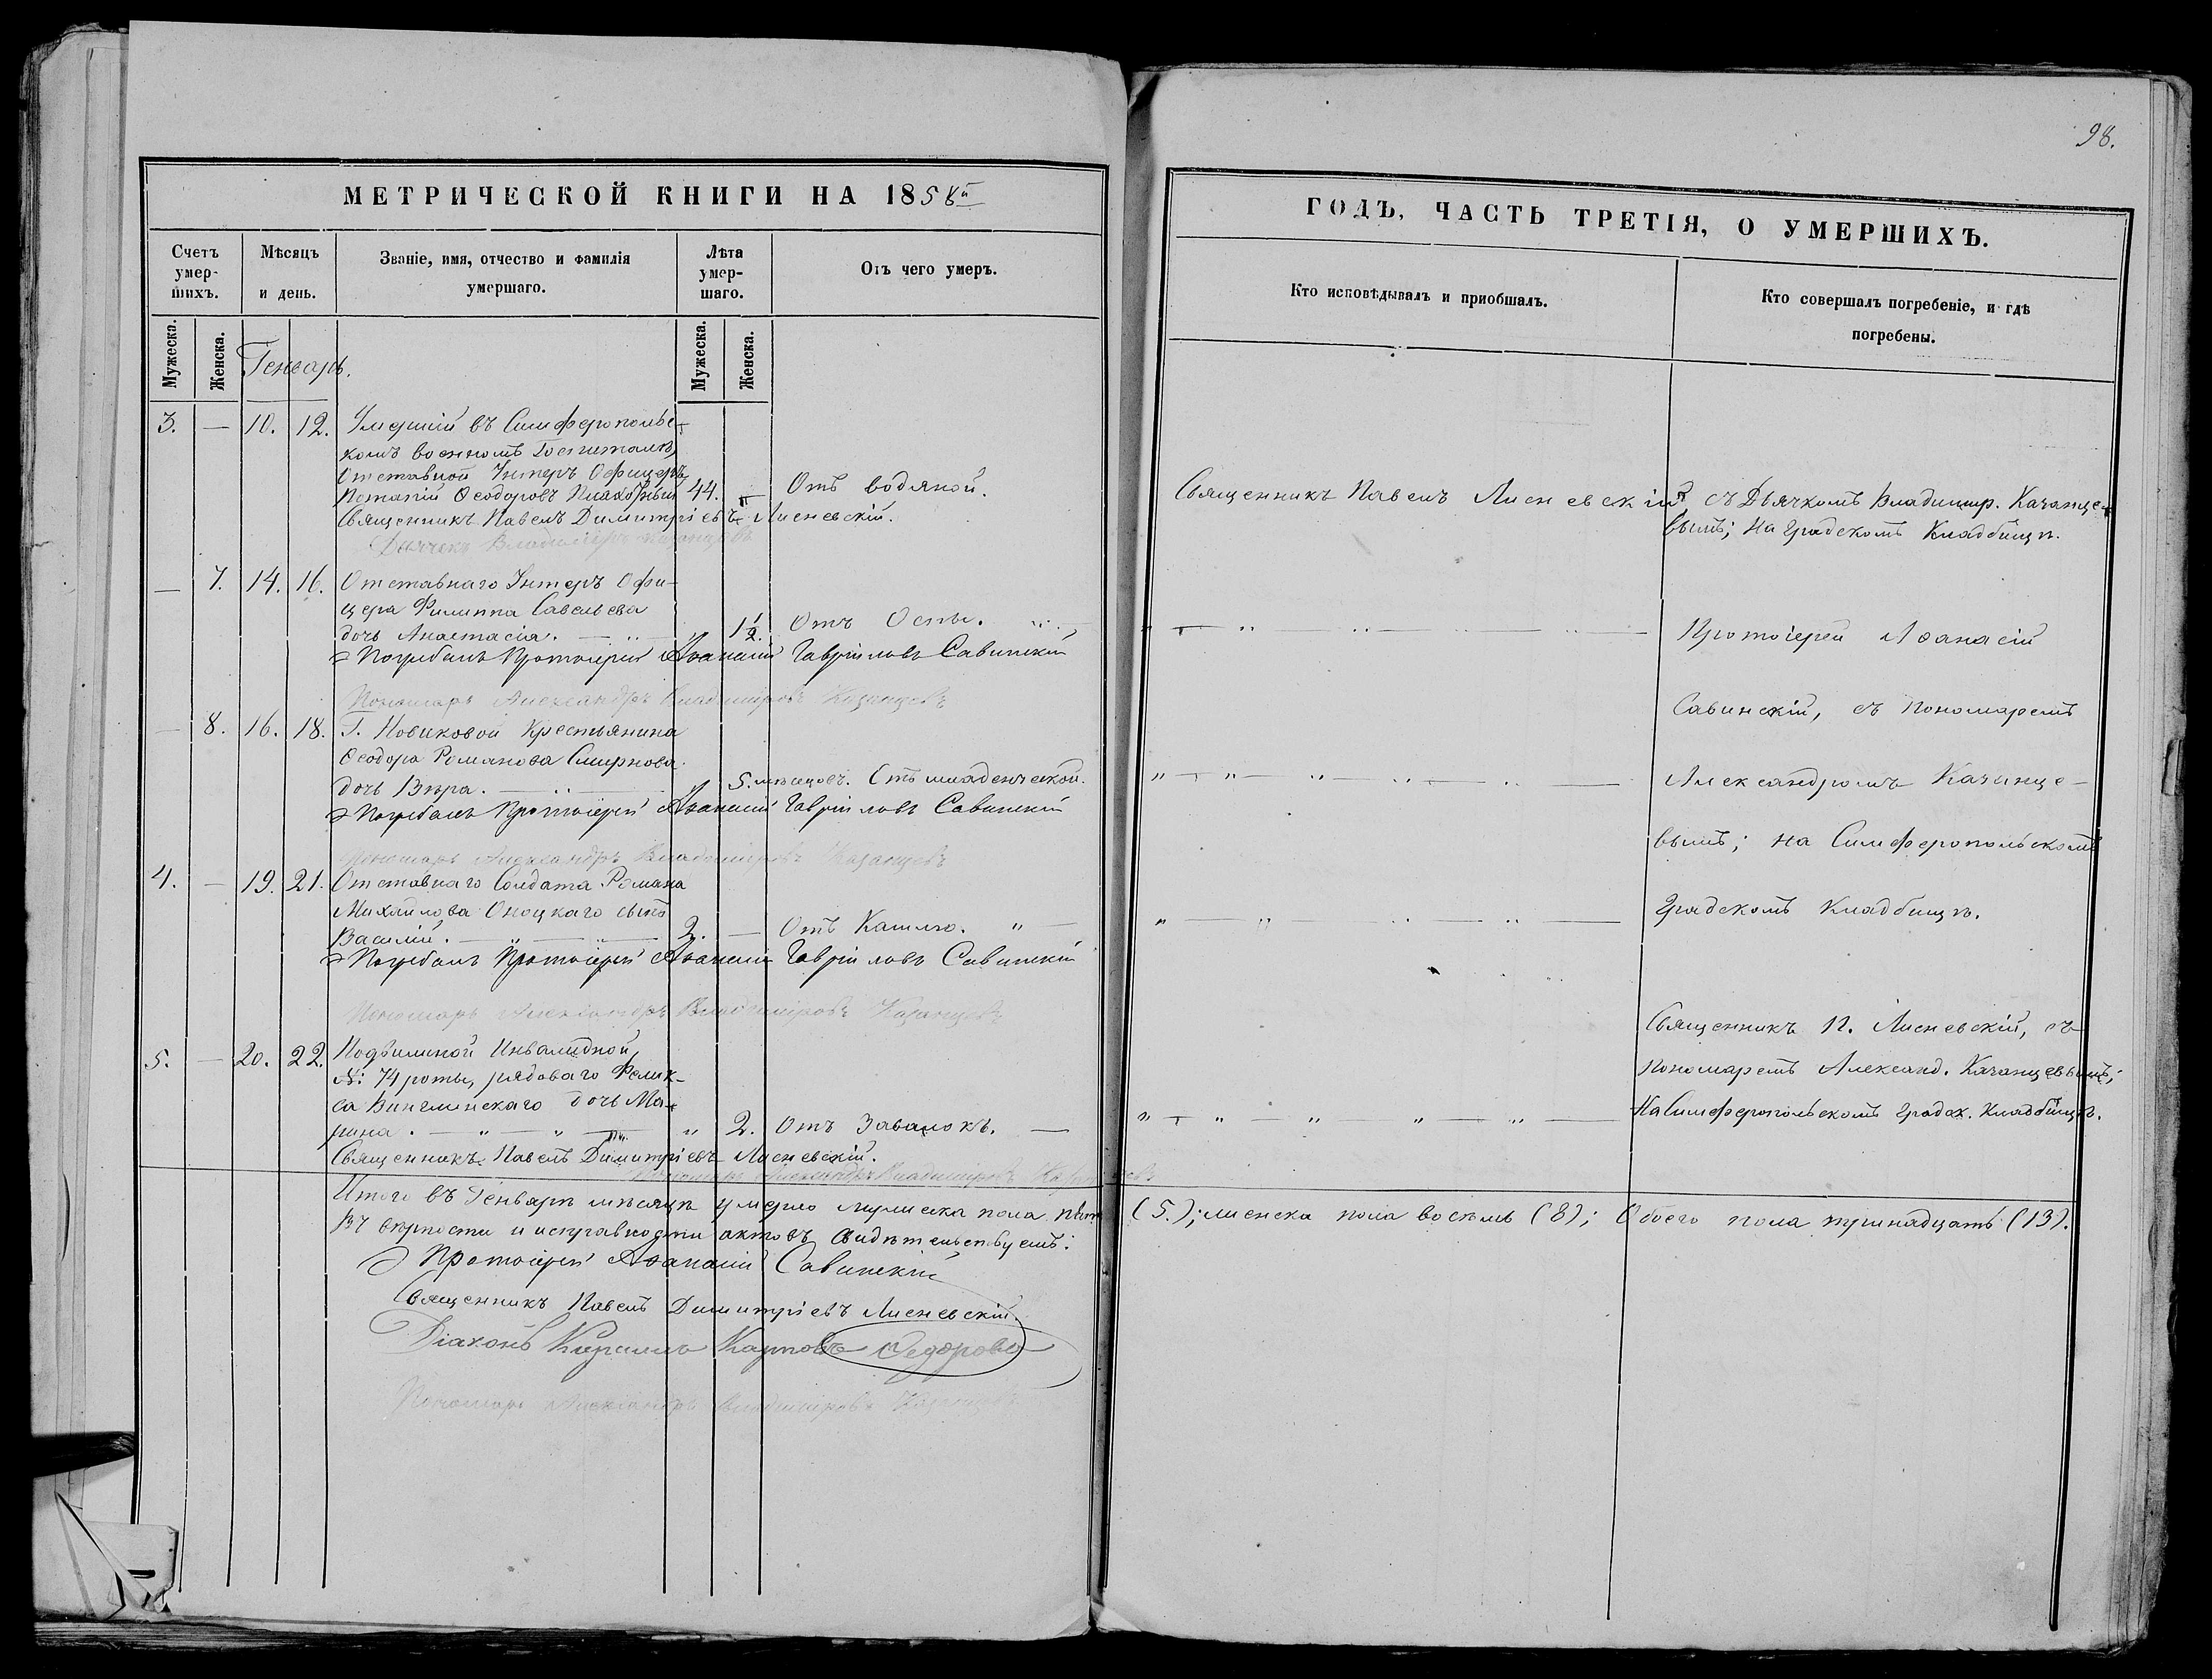 98.
МЕТРИЧЕСКОЙ КНИГИ НА 1858й
ГОДЪ, ЧАСТЬ ТРЕТІЯ, О УМЕРШИХЪ.
Счетъ умер-
шихъ.
Мѣсяцъ
и день.
Званіе, имя, отчество и фамилія
умершаго.
Лѣта
умер-
шаго.
Отъ чего умеръ.
Кто исповѣдывалъ и приобщалъ.
Кто совершалъ погребеніе, и гдѣ
погребены.
Мужеска.
Женска.
Генварь.
Мужеска.
Женска.
3. — 10. 12. Умершій въ Симферопольс-
комъ военномъ Госпиталѣ,
Отставной Унтеръ Офицеръ
Потапій Ѳеодоровъ 44. — Отъ водяной.
Священникъ Павелъ Димитріевъ Лисневскій.
Дьячекъ Владиміръ Казанцевъ
Священникъ Павелъ Лисневскій
съ Дьячкомъ Владимир. Казанце-
вымъ; на градскомъ Кладбищѣ.
— 7. 14. 16. Отставнаго Унтеръ Офи-
цера Филиппа Савельева
дочь Анастасія. 1½. Отъ Оспы.
Погребалъ Протоіерей Аѳанасій Гавріиловъ Савинскій
Пономарь Александръ Владиміровъ Казанцевъ
Протоіерей Аѳанасій
Савинскій, съ пономаремъ
— 8. 16. 18. Г. Новиковой Крестьянина
Ѳеодора Романова Смирнова
дочь Вѣра. 5. мѣсяцовъ. Отъ младенческой.
Погребалъ Протоіерей Аѳанасій Гавріиловъ Савинскій
Пономарь Александръ Владиміровъ Казанцевъ
Александромъ Казанце-
вымъ; на Симферопольскомъ
4. — 19. 21. Отставнаго Солдата Романа
Михайлова Оноцкаго сынъ
Василій. 2. — Отъ Кашлю.
Погребалъ Протоіерей Аѳанасій Гавріиловъ Савинскій
Пономарь Александръ Владиміровъ Казанцевъ
градскомъ Кладбищѣ.
5. — 20. 22. Подвижной Инвалидной,
№: 74 роты, рядоваго Фелик-
са дочь Ма-
рина. 2. Отъ Завалокъ. —
Священникъ Павелъ Димитріевъ Лисневскій.
Пономарь Александръ Владиміровъ Казанцевъ
Священникъ П. Лисневскій, съ
пономаремъ Александ. Казанцевымъ;
На Симферопольскомъ градск. кладбищѣ.
Итого въ Генварѣ мѣсяцѣ умерло мужеска пола пять (5.); женска пола восемь (8); Обоего пола тринадцать (13).
Въ вѣрности и исправности актовъ свидѣтельствуемъ:
Протоіерей Аѳанасій Савинскій
Священникъ Павелъ Димитріевъ Лисневскій.
Діаконъ Кириллъ Карповъ Федоровъ
Пономарь Александръ Владиміровъ Казанцевъ